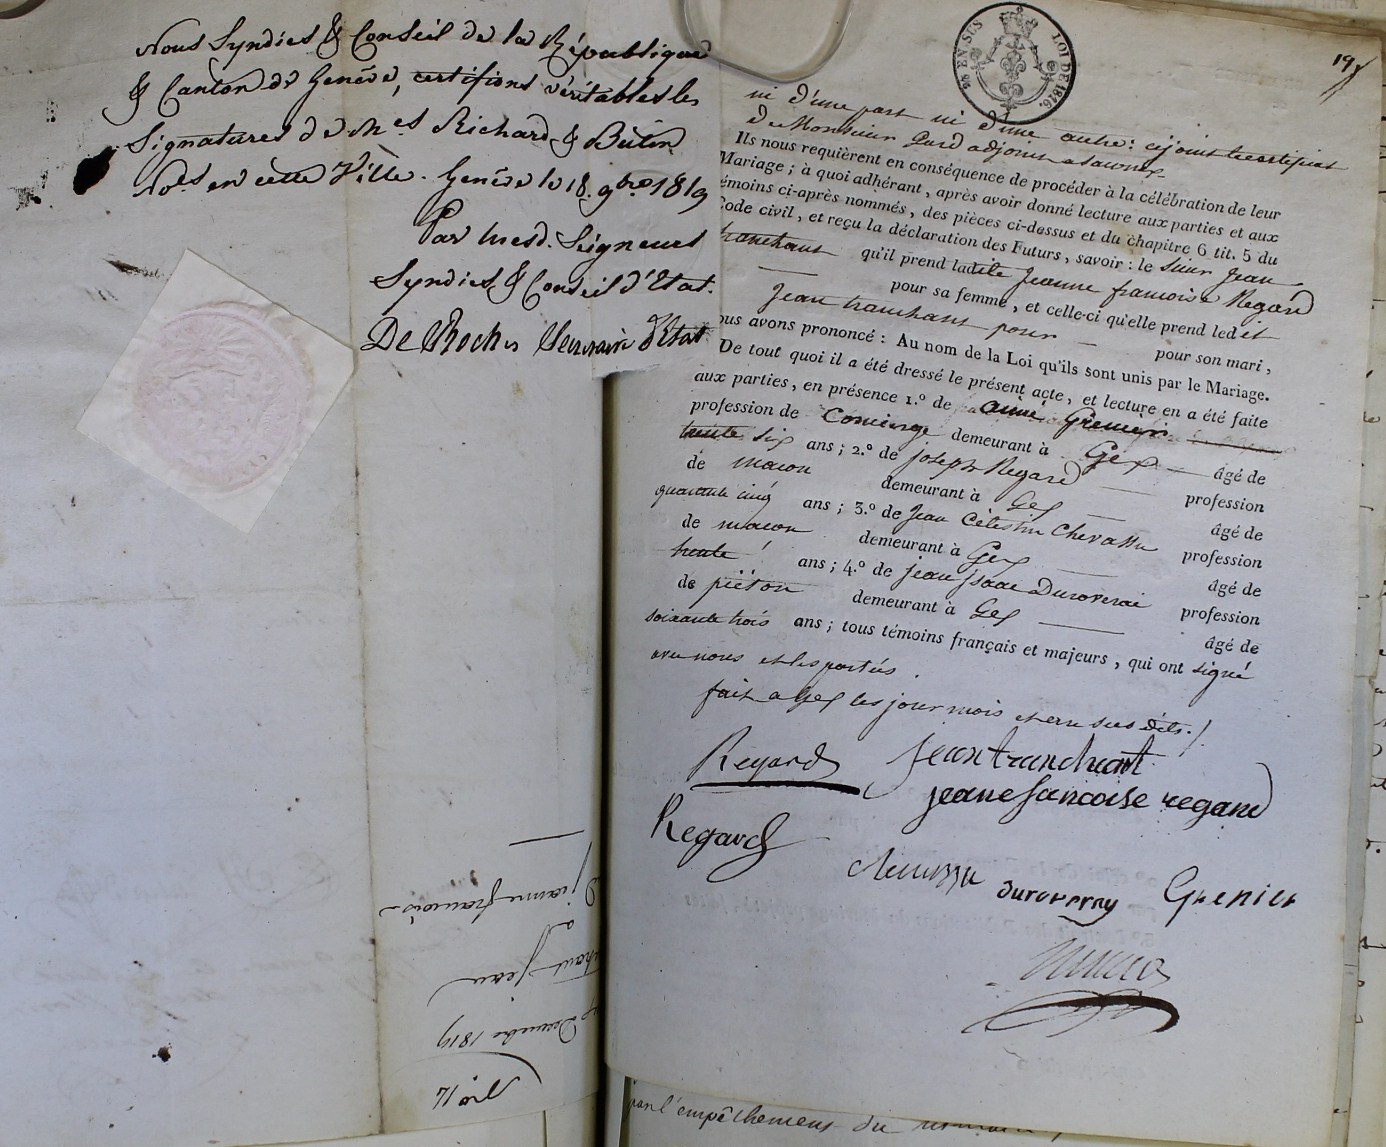 Nous Syndics & Conseil de la République
& Canton de Genève, certifions véritables les
Signatures de Mes Richard & Butin
Nores en cette Ville. Genève le 18. 9bre 1819
Par mesd. Seigneurs
Syndics & Conseil d'Etat.
De Roches Secretaire d'Etat
EN SUS LOI DE 1816.
19
ni d'une part ni d'une autre: cijoint le certificat
de Monsieur adjoint a
Ils nous requièrent en conséquence de procéder à la célébration de leur
Mariage ; à quoi adhérant, après avoir donné lecture aux parties et aux
témoins ci-après nommés, des pièces ci-dessus et du chapitre 6 tit. 5 du
Code civil, et reçu la déclaration des Futurs, savoir : le sieur Jean
tranchant qu'il prend ladite Jeanne francoise Regard
pour sa femme, et celle-ci qu'elle prend ledit
Jean tranchant pour pour son mari,
ous avons prononcé : Au nom de la Loi qu'ils sont unis par le Mariage.
De tout quoi il a été dressé le présent acte, et lecture en a été faite
aux parties, en présence 1.º de aimé Grenier
profession de Concierge demeurant à Gex âgé de
trente six ans ; 2.º de joseph Regard profession
de macon demeurant à Gex âgé de
quarante cinq ans ; 3.º de Jean Célestin Chevassu profession
de macon demeurant à Gex âgé de
trente ans ; 4.º de jean isaac Duroveray profession
de piéton demeurant à Gex âgé de
soixante trois ans ; tous témoins français et majeurs, qui ont signé
avec nous et les parties.
fait a Gex les jour mois et an sus dits./
Regard jean tranchant
jeane francoise regard
Regard
chevassu duroveray Grenier
Jeanne francoise
&
Jean
Decembre 1819
par l'empêchement du